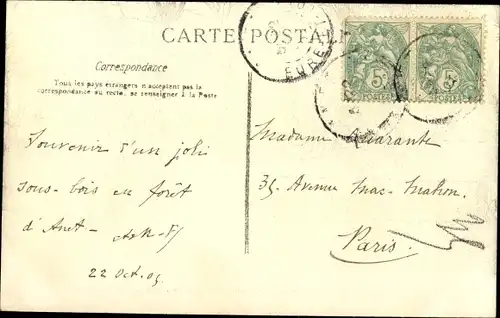 CARTE POSTALE
EURE
5c
5c
POSTES
POSTES
Correspondance
Tous les pays étrangers n'acceptent pas la
correspondance au recto, se renseigner à la Poste
Souvenir d'un joli
sous-bois en forêt
d'Anet -
22 Oct. 05
Madame Quarante
35 Avenue Mac-Mahon
Paris